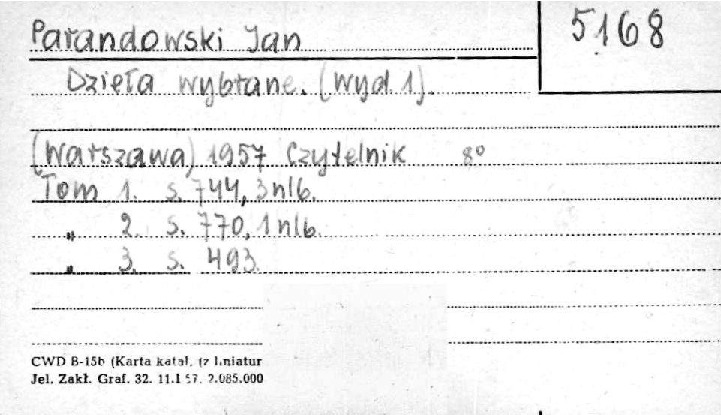 Parandowski Jan
5168
Dzieła wybrane. (wyd. 1).
(Warszawa) 1957 Czytelnik 8º
Tom 1. s. 744, 3 nlb.
„ 2. s. 770, 1 nlb.
„ 3. s. 493.
CWD B-15b (Karta katal. (z liniatur
Jel. Zakł. Graf. 32. 11.I 57. 2.085.000